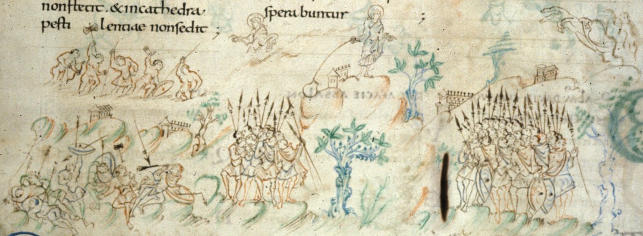 nonstetit. & incathedra
pesti lentiae nonsedit ;
sperabuntur ;